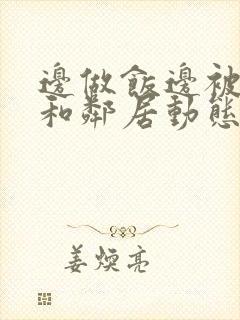 邊做飯邊被
和鄰居動態
姜煥亮